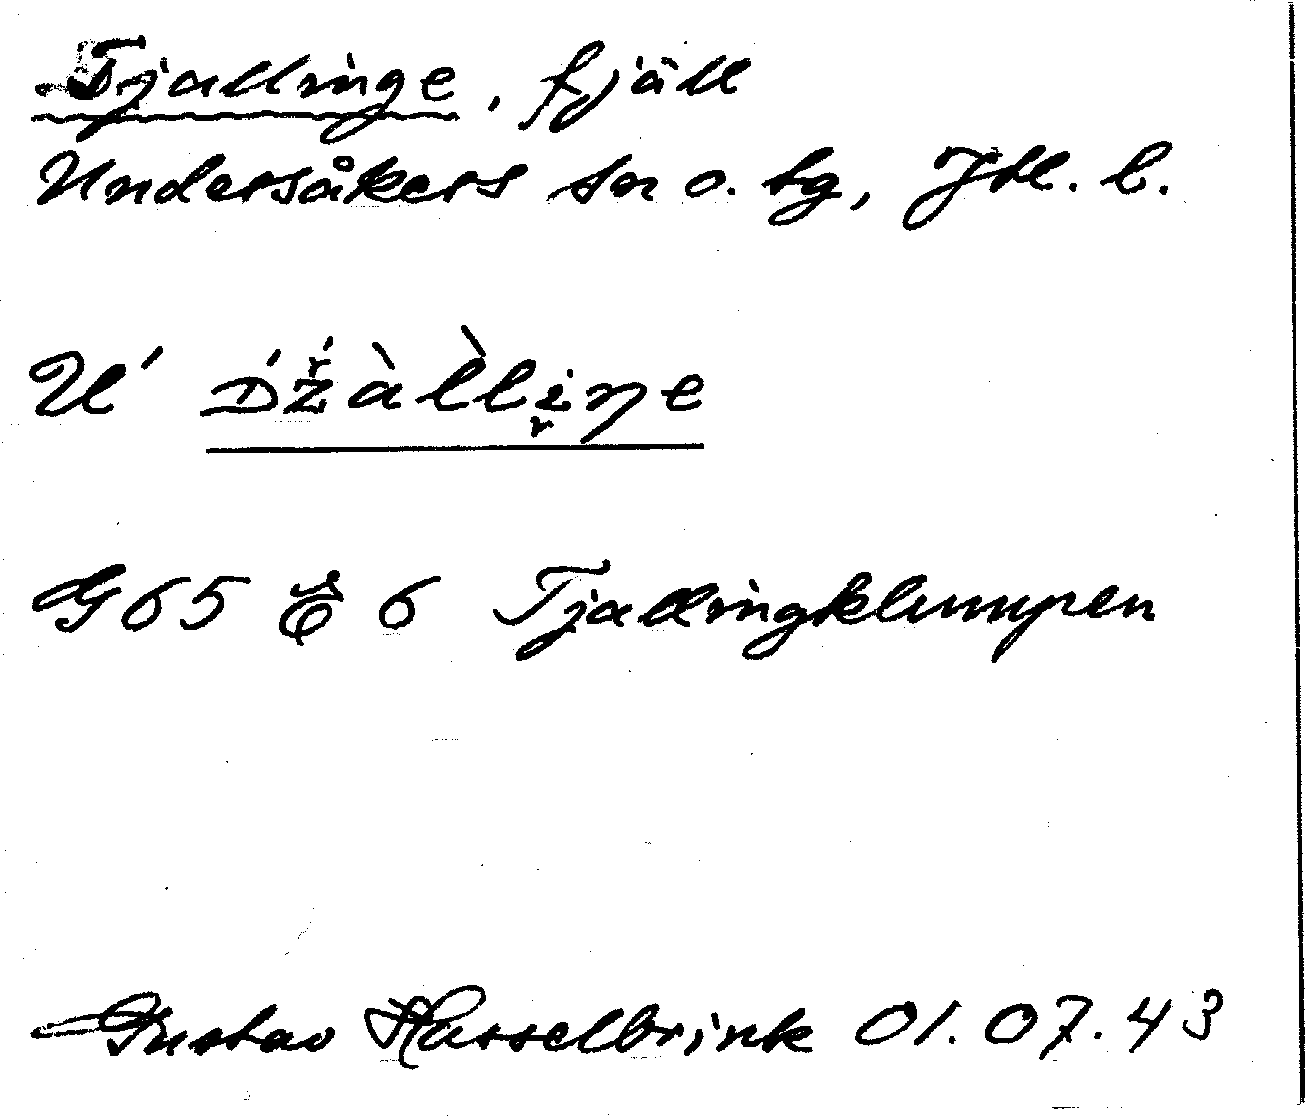 Tjallinge, fjäll
Undersåkers sn o. tg, Jtl. l.
U' Džàl̀liŋe
G 65 6 Tjallingklumpen
Gustav Hasselbrink 01.07.43